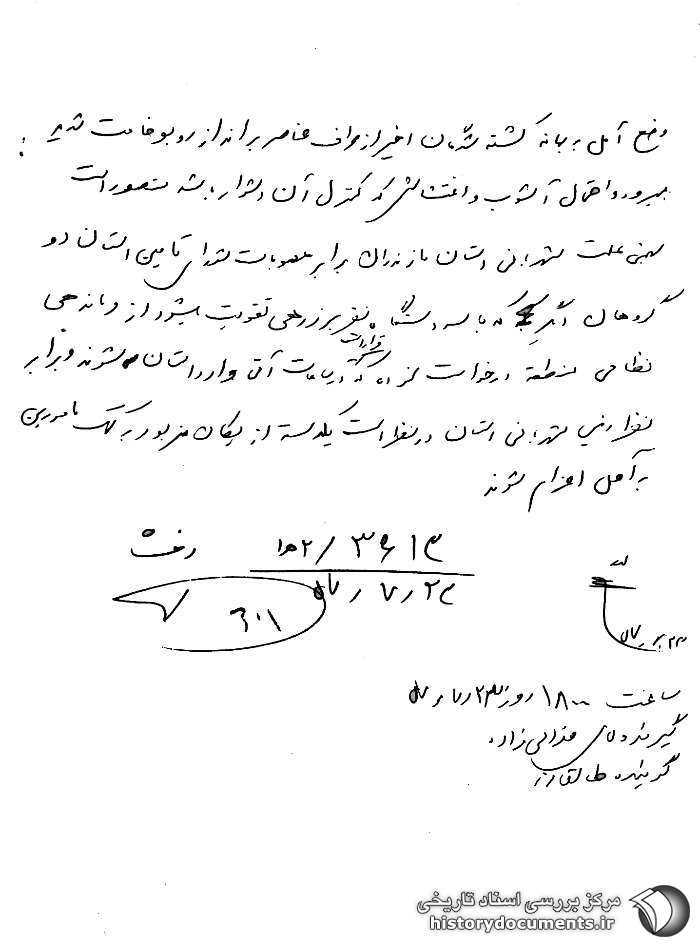 وضع آمل به بهانه کشته شدگان اخیر از طرف عناصر برانداز رو به وخامت شدید
میرود و احتمال آشوب و اغتشاش که کنترل آن دشوار باشد متصور است
بهمین علت شهربانی استان مازندران برابر مصوبات شورای تامین استان دو
گروهان که با سه دستگاه نفربر زرهی تقویت میشود از فرماندهی
نظامی منطقه درخواست نموده که در ساعات آتی وارد استان میشوند و برابر
نظر رئیس شهربانی استان در نظر است یکدسته از یگان مزبور به کمک مامورین
به آمل اعزام شوند
رفت
۳۶۱۳/۱۵۲
۲۳/۷/۵۷
۶۰۱
ساعت ۱۸۰۰ روز ۲۳/۷/۵۷
گیرنده آقای غزالی زاده
گوینده
مرکز بررسی اسناد تاریخی
historydocuments.ir